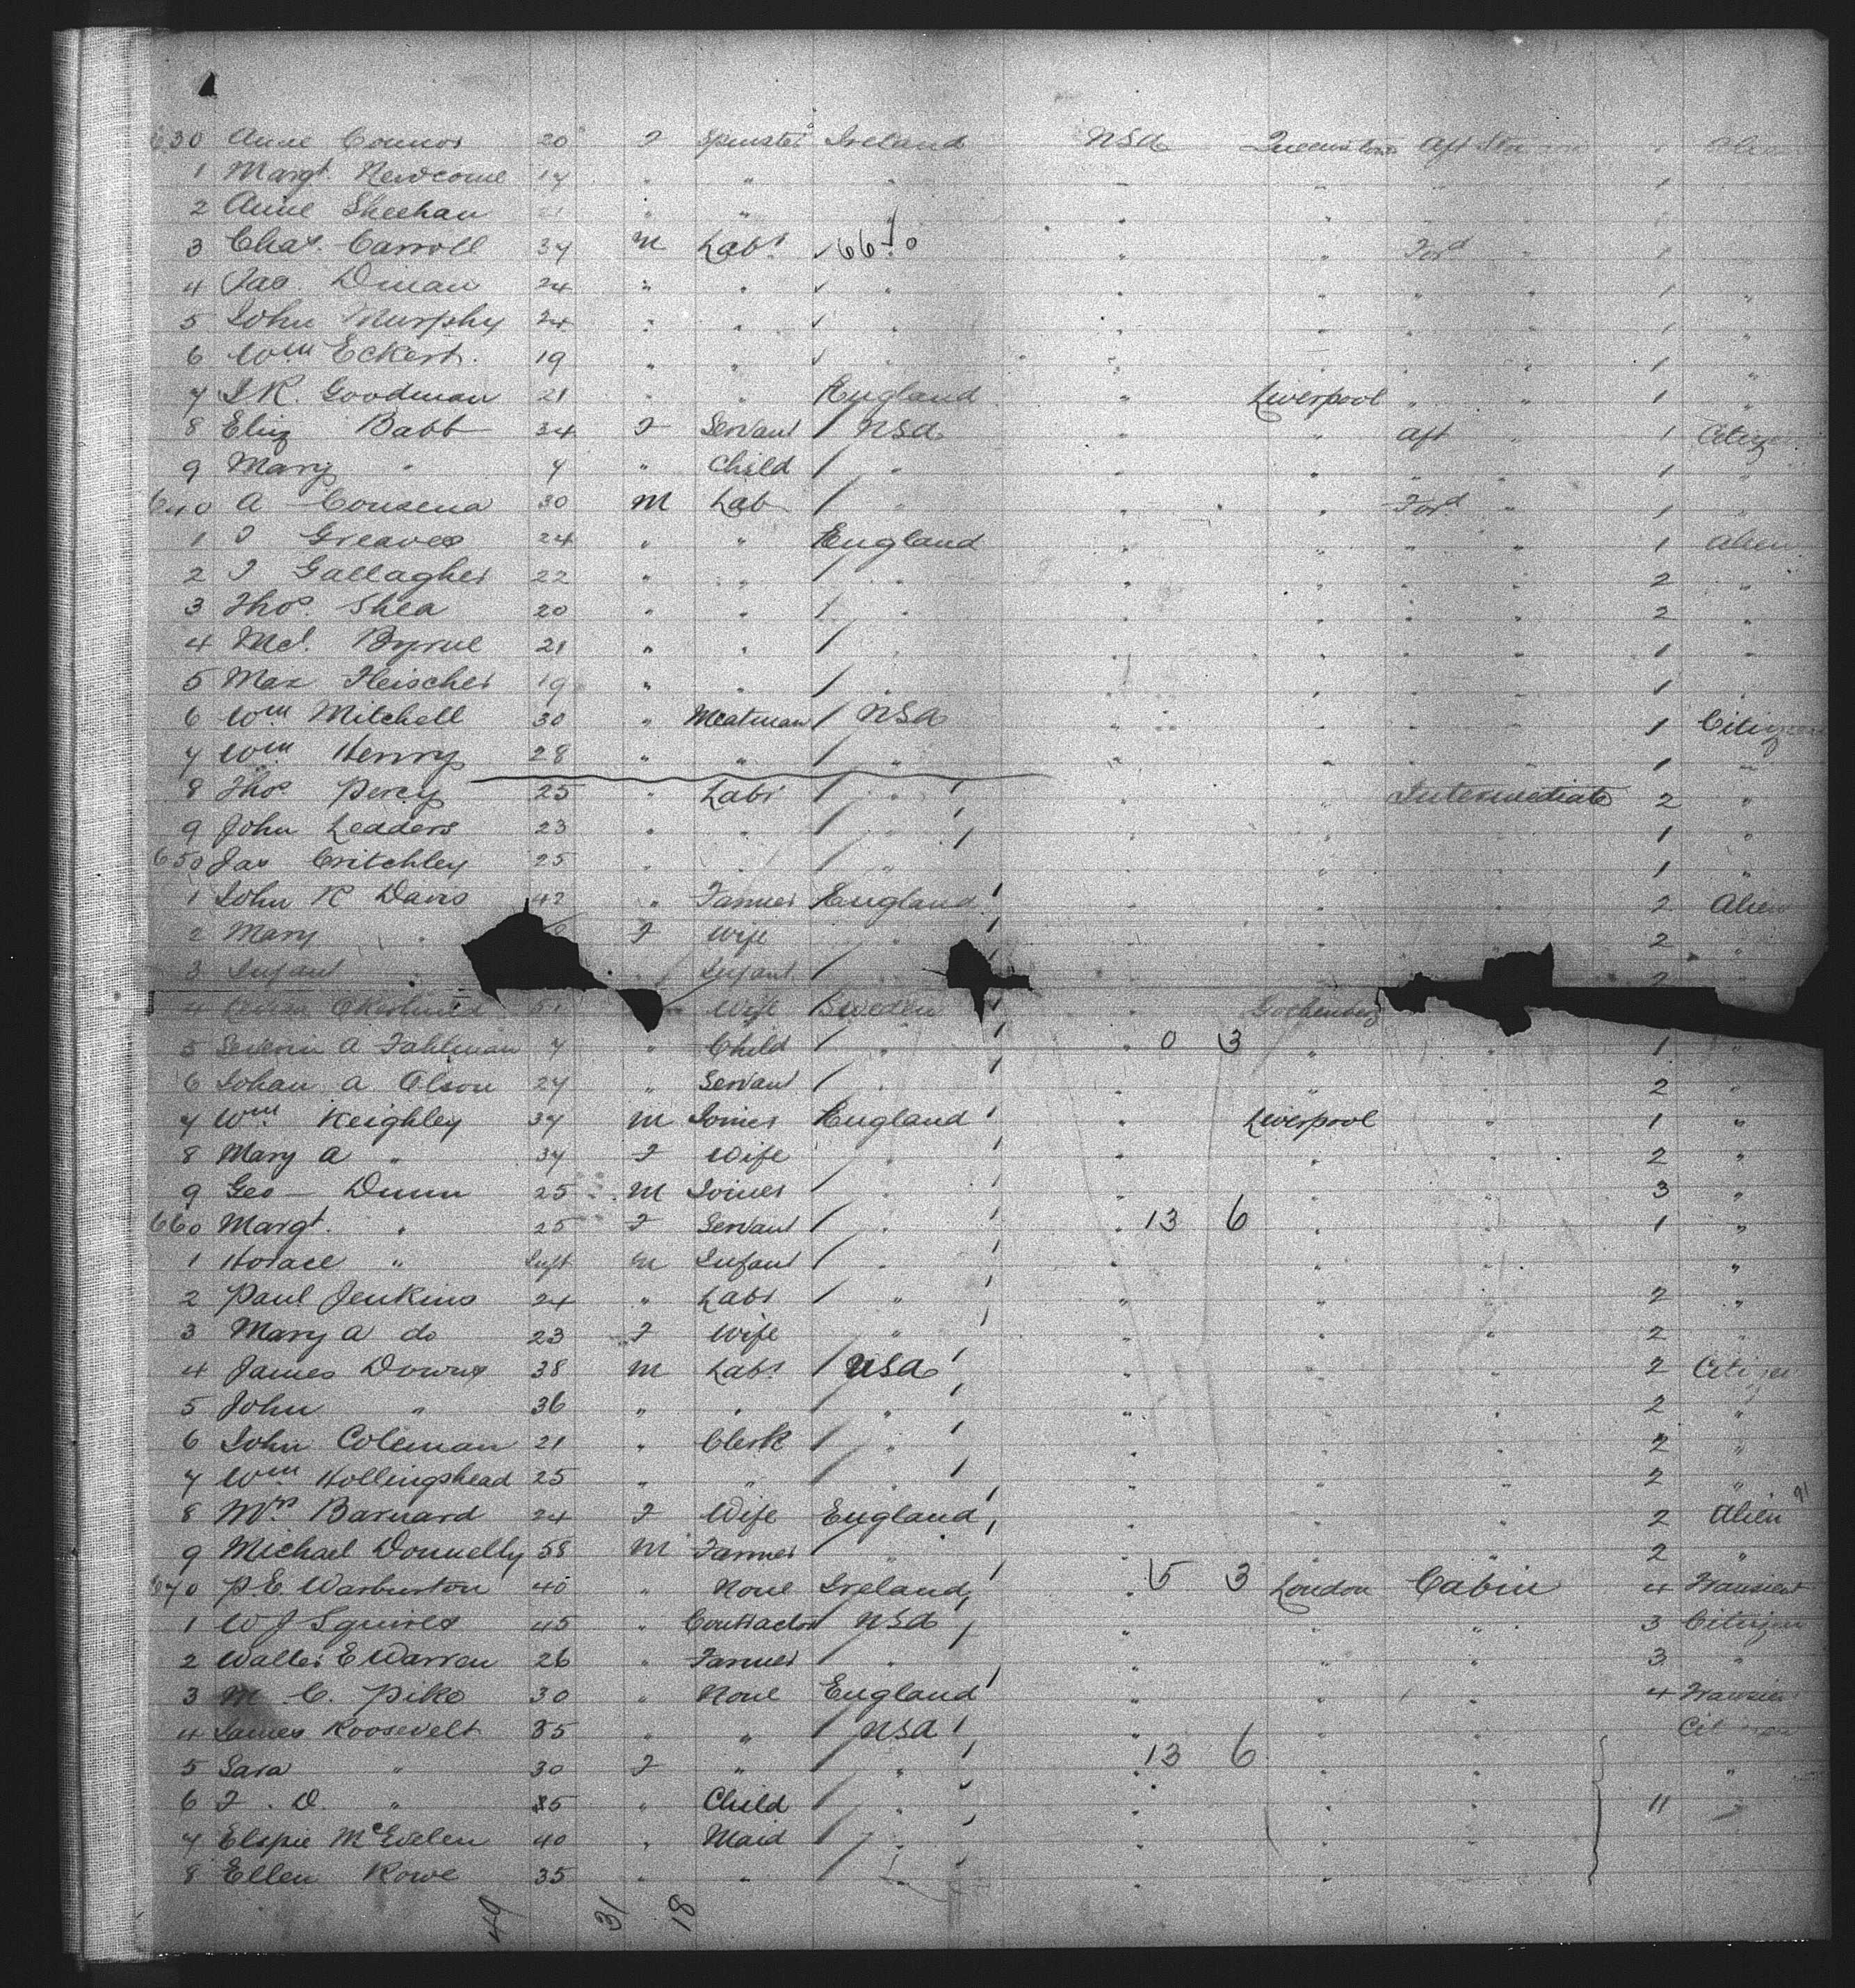 630 Anne Connor 20 F Spinster Ireland USA Queenstown Aft
1 Margt. Newcome 17 " " " " " " " 1
2 Anne Sheehan 21 " " " " " " "
3 Chas. Carroll 37 m Labr ✓ 66 " " Ford " 1
4 Jas. Dinan 24 " " ✓ " " " " " 1 "
5 John Murphy 24 " " ✓ " " " " " 1 "
6 Wm Eckert 19 " " ✓ " " " " " 1 "
7 J.R. Goodman 21 " " England " Liverpool " " 1 "
8 Eliz Babb 34 F Servant / USA " " Aft " 1 Citizen
9 Mary " 7 " Child / " " " " " 1 "
640 A Cousena 30 M Lab / " " " Ford " 1 "
1 J Greaves 24 " " England " " " " 1 Alien
2 J Gallagher 22 " " / " " " " " 2 "
3 Thos. Shea 20 " " / " " " " " 2 "
4 Mcl. Byrne 21 " " / " " " " " 1 "
5 Max Fleischer 19 " " / " " " " " 1 "
6 Wm Mitchell 30 " Meatman / USA " " " " 1 Citizen
7 Wm Henry 28 " " / " " " " " 1 "
8 Thos. Percy 25 " Labr / " " " Intermediate 2 "
9 John Leaders 23 " " / " " " " 1 "
650 Jas Critchley 25 " " / " " " " 1 "
1 John R Davis 42 " Farmer England " " " 2 Alien
2 Mary " F Wife " " " 2 "
3 Infant " Infant / " " " 2 "
4 51 Wife Sweden " Gothenberg
5 A Fahlman 7 " Child / " " 0 3 " " 1 "
6 Johan A Olson 27 " Servant / " " " " 2 "
7 Wm Keighley 37 m Joiner England " Liverpool " 1 "
8 Mary A " 37 F Wife " " " " 2 "
9 Geo Dunn 25 M Joiner / " " " " 3 "
660 Margt. " 25 F Servant / " " 13 6 " " 1 "
1 Horace " Inft m Infant / " " " " "
2 Paul Jenkins 24 " Labr / " " " " 2 "
3 Mary A do 23 F Wife " " " " 2 "
4 James Downs 38 m Labr / USA " " " 2 Citizen
5 John " 36 " " / " " " " 2 "
6 John Coleman 21 " Clerk / " " " " 2 "
7 Wm Hollingshead 25 " " / " " " " 2 "
8 Mrs Barnard 24 F Wife England " " " 2 Alien 91
9 Michael Donnelly 58 m Farmer / " " " " 2 "
670 P.E Warburton 40 " None Ireland " 15 3 London Cabin 4 Transient
1 W J Squires 45 " Contractor USA " " " 3 Citizen
2 Walter E Warren 26 " Farmer / " " " " 3 "
3 M C. Pike 30 " None England " " " 4 Transient
4 James Roosevelt 35 " " / USA " " " Citizen
5 Sara " 30 F " " " 13 6 " " "
6 F. D. " 35 " Child / " " " " 11 "
7 Elspie McEvelen 40 " Maid / " " " "
8 Ellen Rowe 35 " " / " " "
49 31 18